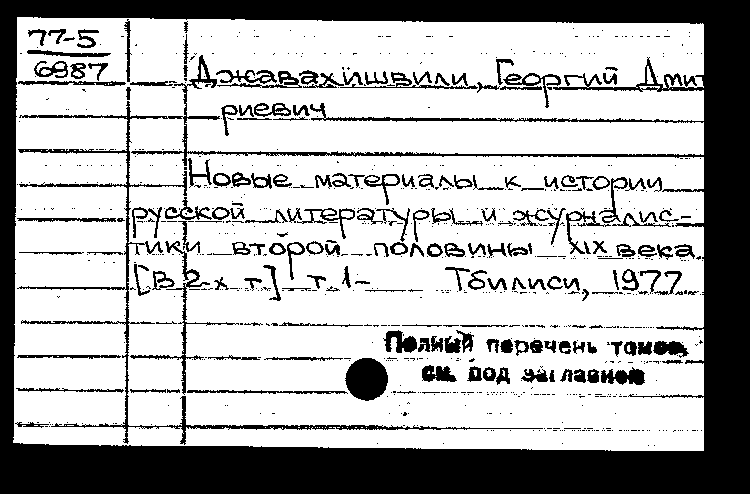 77-5
6987
Джавахишвили, Георгий Дмит
риевич
Новые материалы к истории
русской литературы и журналис-
тики второй половины XIX века
[В 2-х т.] т. 1-  Тбилиси, 1977
Полный перечень томов
см. под заглавием